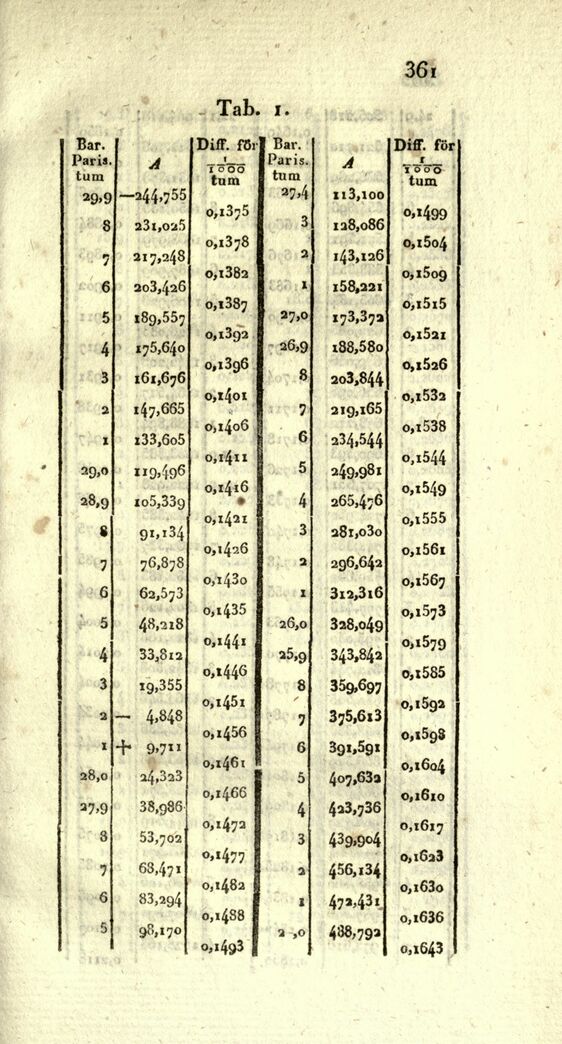 361
Tab. 1.
Bar. Paris. tum | A | Diff. för 1/1000 tum | Bar. Paris. tum | A | Diff. för 1/1000 tum
29,9 | —244,755 | | 27,4 | 113,100 |
0,1375 | 0,1499
8 | 231,025 | | 3 | 128,086 |
0,1378 | 0,1504
7 | 217,248 | | 2 | 143,126 |
0,1382 | 0,1509
6 | 203,426 | | 1 | 158,221 |
0,1387 | 0,1515
5 | 189,557 | | 27,0 | 173,372 |
0,1392 | 0,1521
4 | 175,640 | | 26,9 | 188,580 |
0,1396 | 0,1526
3 | 161,676 | | 8 | 203,844 |
0,1401 | 0,1532
2 | 147,665 | | 7 | 219,165 |
0,1406 | 0,1538
1 | 133,605 | | 6 | 234,544 |
0,1411 | 0,1544
29,0 | 119,496 | | 5 | 249,981 |
0,1416 | 0,1549
28,9 | 105,339 | | 4 | 265,476 |
0,1421 | 0,1555
8 | 91,134 | | 3 | 281,030 |
0,1426 | 0,1561
7 | 76,878 | | 2 | 296,642 |
0,1430 | 0,1567
6 | 62,573 | | 1 | 312,316 |
0,1435 | 0,1573
5 | 48,218 | | 26,0 | 328,049 |
0,1441 | 0,1579
4 | 33,812 | | 25,9 | 343,842 |
0,1446 | 0,1585
3 | 19,355 | | 8 | 359,697 |
0,1451 | 0,1592
2 | — 4,848 | | 7 | 375,613 |
0,1456 | 0,1598
1 | + 9,711 | | 6 | 391,591 |
0,1461 | 0,1604
28,0 | 24,323 | | 5 | 407,632 |
0,1466 | 0,1610
27,9 | 38,986 | | 4 | 423,736 |
0,1472 | 0,1617
8 | 53,702 | | 3 | 439,904 |
0,1477 | 0,1623
7 | 68,471 | | 2 | 456,134 |
0,1482 | 0,1630
6 | 83,294 | | 1 | 472,431 |
0,1488 | 0,1636
5 | 98,170 | | 2 ,0 | 488,792 |
0,1493 | 0,1643